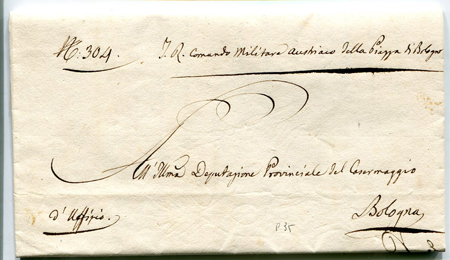 N.: 304.
I. R. Comando Militare Austriaco della Piazza di Bologna
All'Illma Deputazione Provinciale del Casermaggio
d'Uffizio.
Bologna
P 35